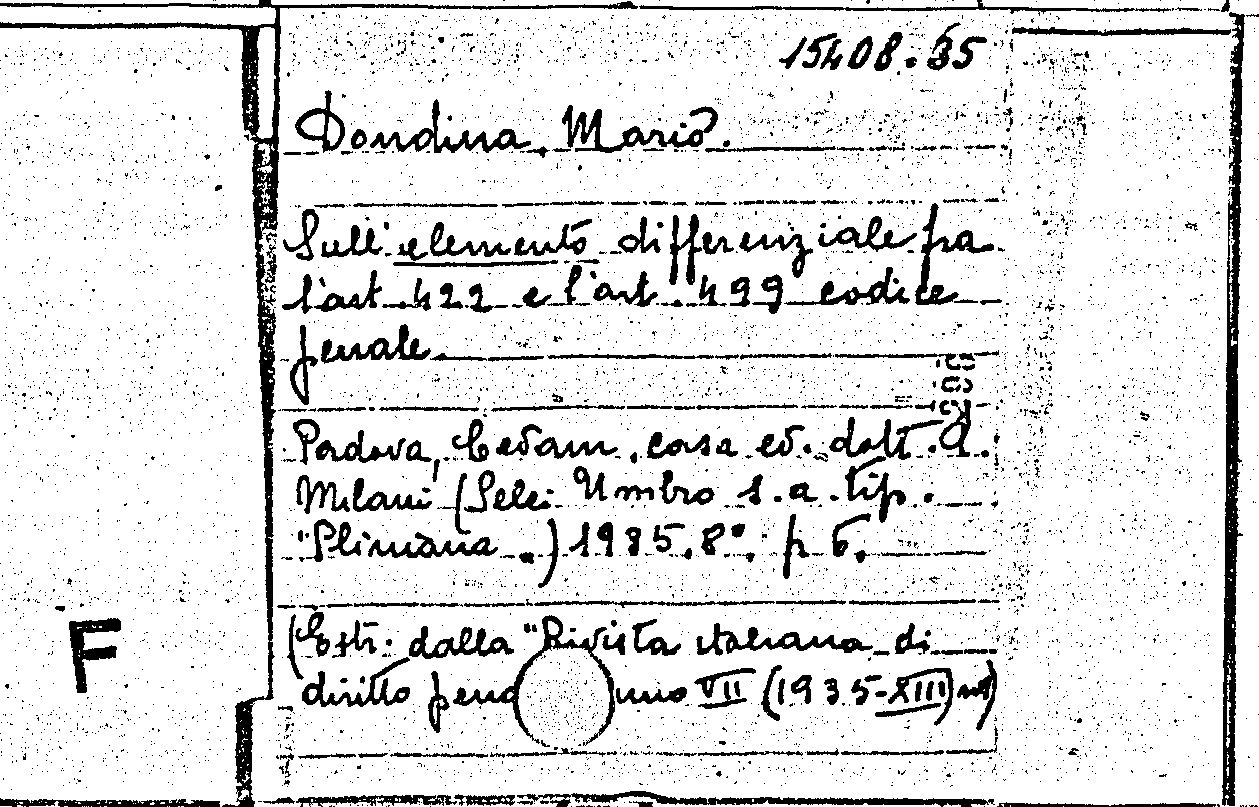 15408.35
Dondina, Mario.
Sull'elemento differenziale fra
l'art. 422 e l'art. 499 codice
penale.
Padova, Cedam, casa ed. dott. A.
Milani (Selci Umbro s.a. tip.
"Pliniana„) 1935. 8°. p 6.
(Estr. dalla "Rivista italiana di
diritto pena nno VII (1935-XIII)
F